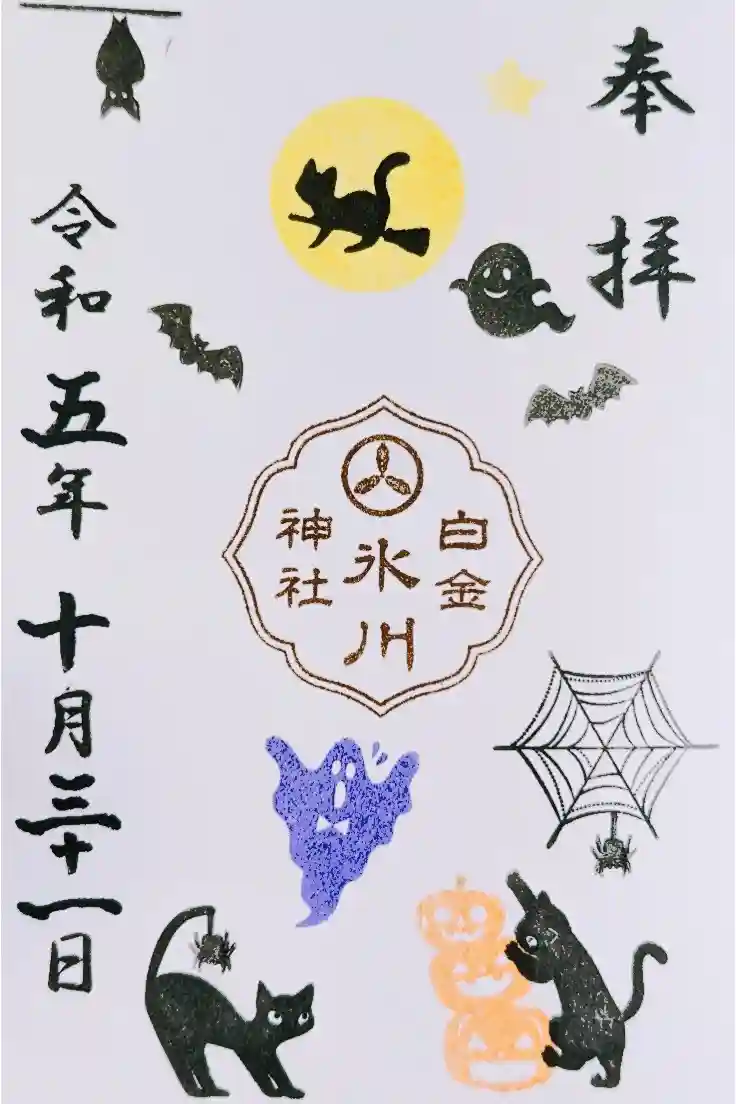 奉拝
白金
氷川
神社
令和五年十月三十一日